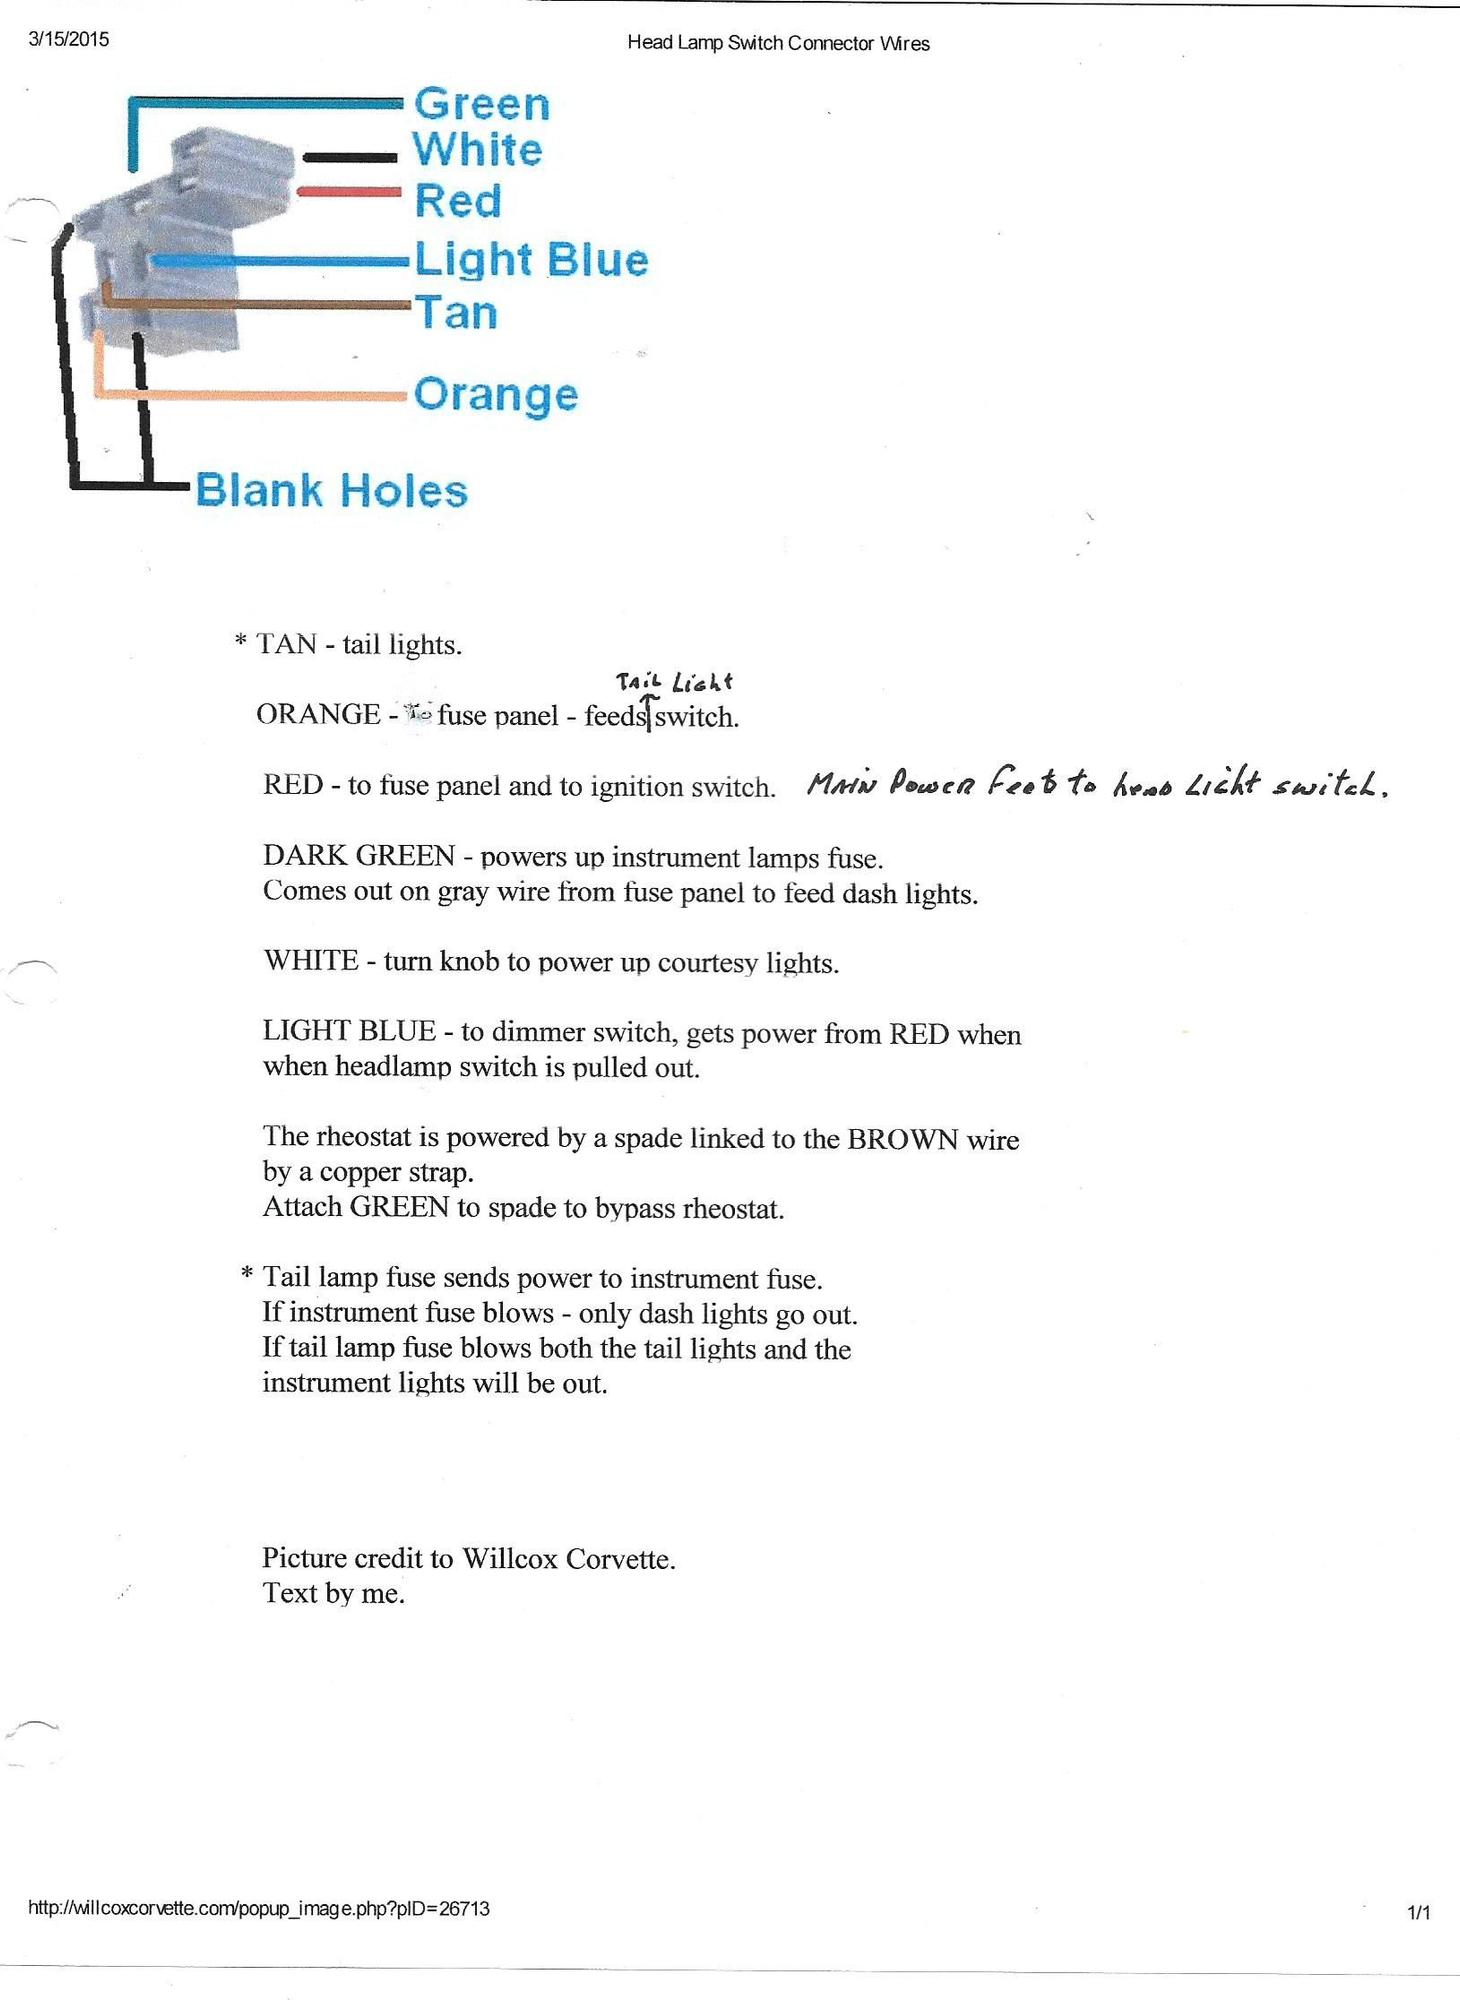 3/15/2015
Head Lamp Switch Connector Wires
Green
White
Red
Light Blue
Tan
Orange
Blank Holes
* TAN - tail lights.
TAIL Light
ORANGE - To fuse panel - feeds switch.
RED - to fuse panel and to ignition switch. MAIN POWER Feed to head Light switch.
DARK GREEN - powers up instrument lamps fuse.
Comes out on gray wire from fuse panel to feed dash lights.
WHITE - turn knob to power up courtesy lights.
LIGHT BLUE - to dimmer switch, gets power from RED when
when headlamp switch is pulled out.
The rheostat is powered by a spade linked to the BROWN wire
by a copper strap.
Attach GREEN to spade to bypass rheostat.
* Tail lamp fuse sends power to instrument fuse.
If instrument fuse blows - only dash lights go out.
If tail lamp fuse blows both the tail lights and the
instrument lights will be out.
Picture credit to Willcox Corvette.
Text by me.
http://willcoxcorvette.com/popup_image.php?pID=26713
1/1